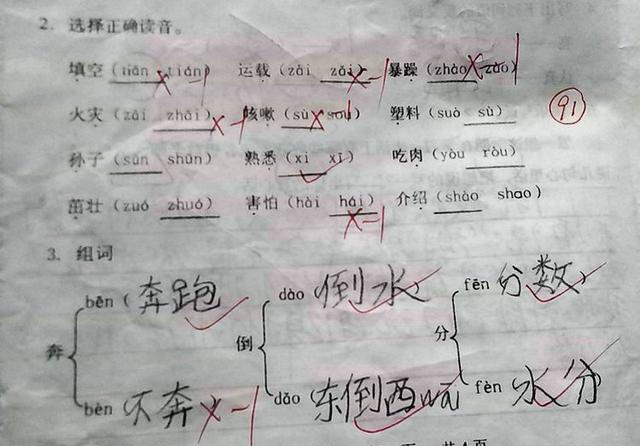 2. 选择正确读音。
填空(tiān tián) -1 运载(zài zǎi) -1 暴躁(zhào zào)
火灾(zāi zhāi) -1 咳嗽(sù sou) 塑料(suò sù) 91
孙子(sūn shūn) 熟悉(xi xī) 吃肉(yòu ròu)
茁壮(zuó zhuó) 害怕(hài hái) -1 介绍(shào shao)
3. 组词
bēn(奔跑 dào(倒水) fēn 分数)
奔 倒 分
bèn 不奔 -1 dǎo 东倒西 fèn 水分